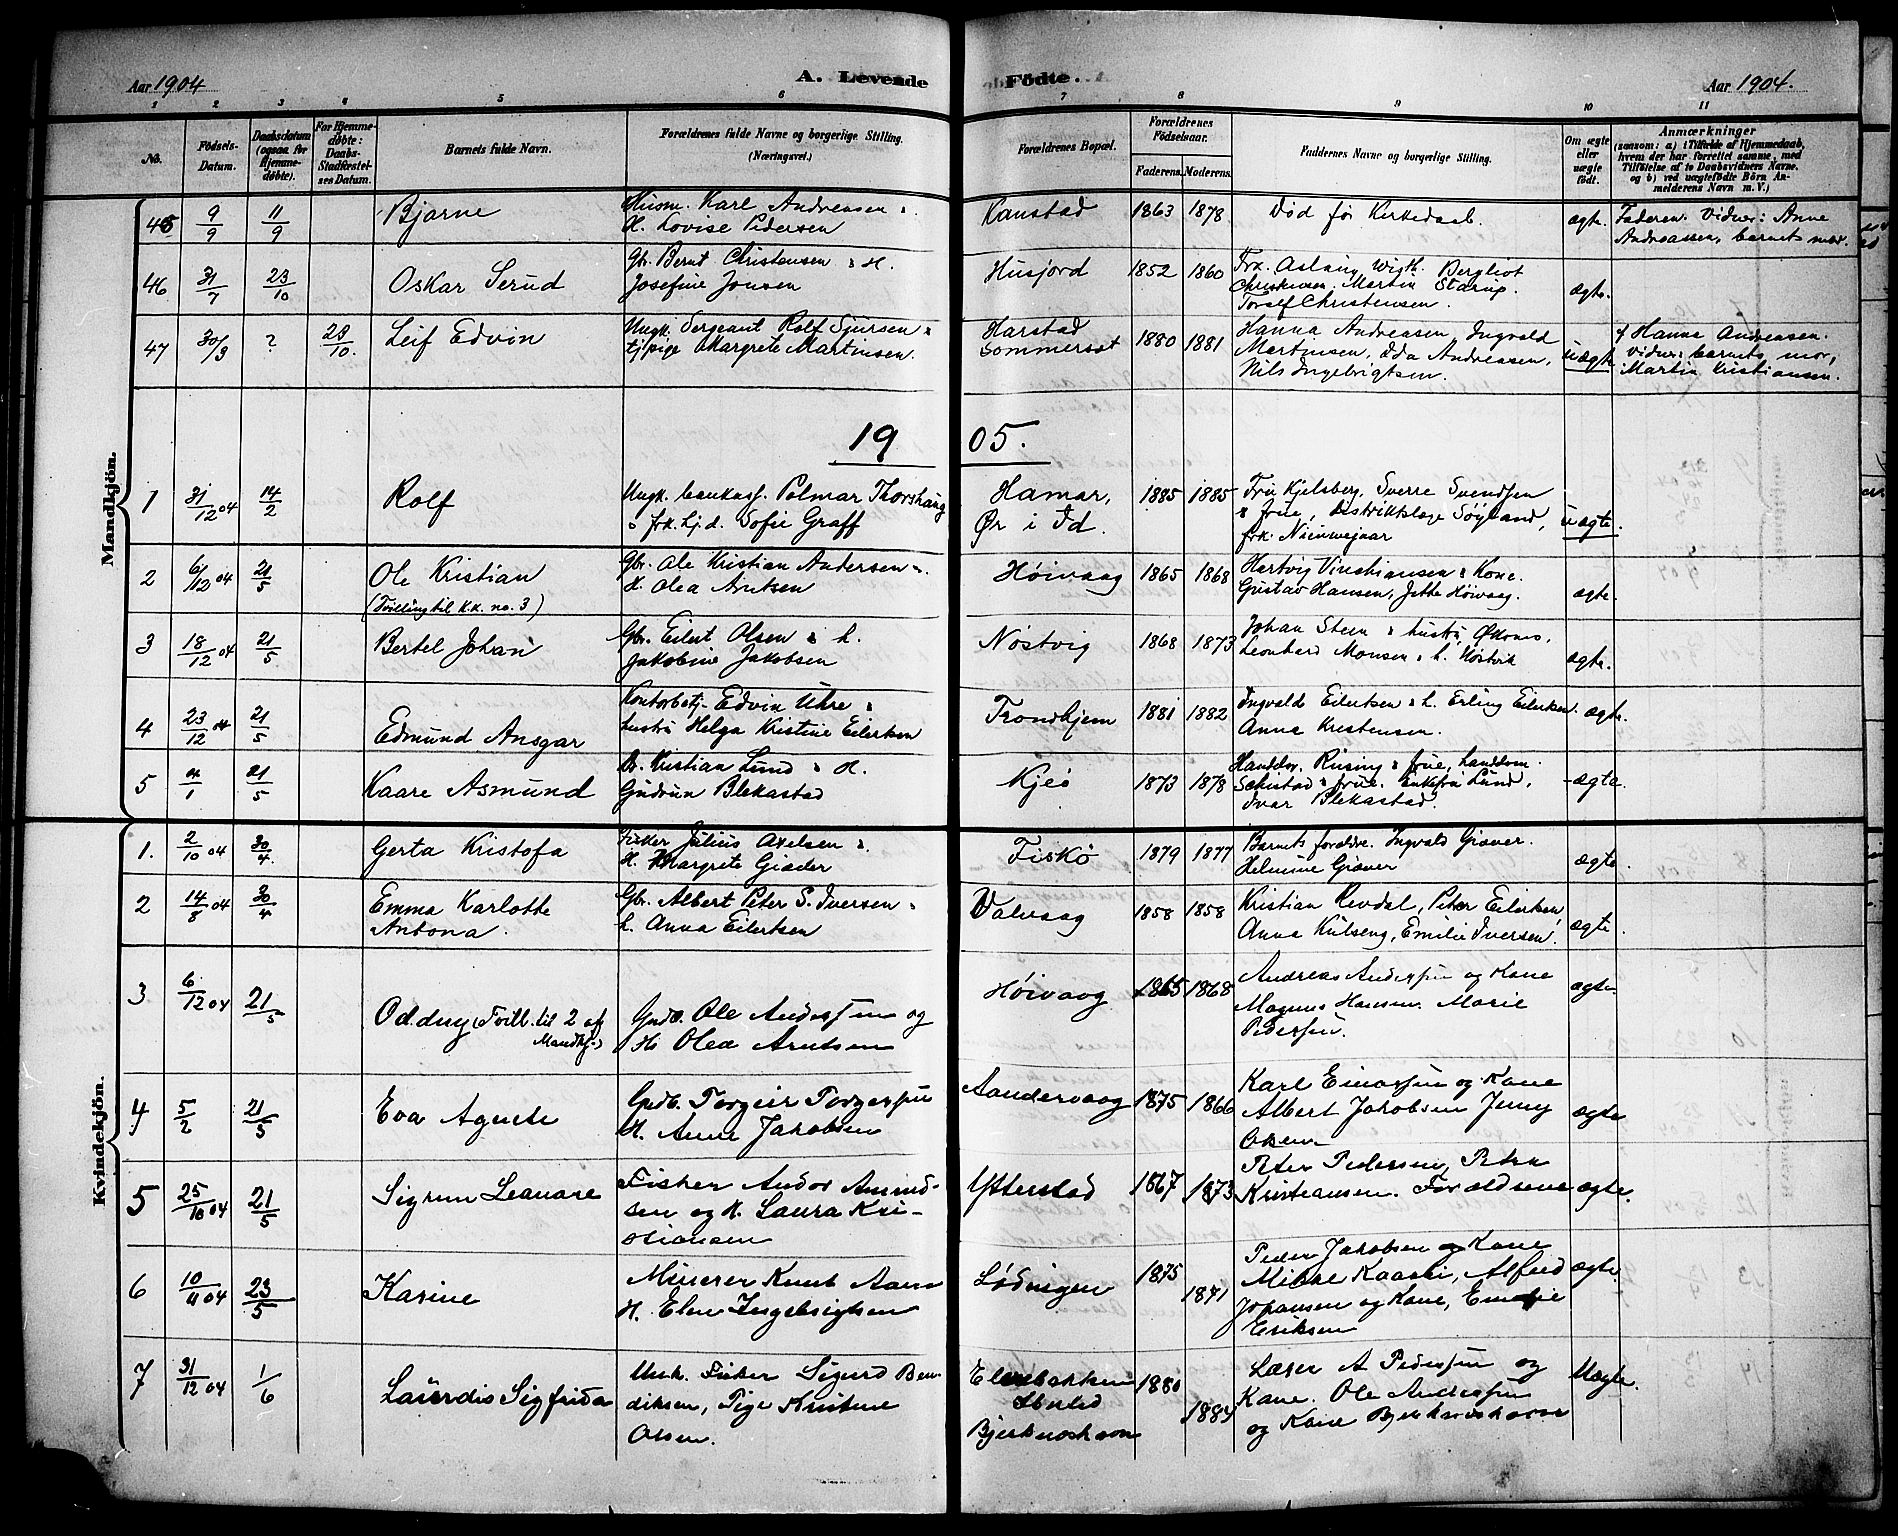 Aar 1904
A. Levende
Födte.
Aar 1904.
1 2 3 4 5 6 7 8 9 10 11
No.
Födsels-
Datum.
Daabsdatum
(ogsaa for
Hjemme-
døbte).
For Hjemme-
døbte:
Daabs-
Stadfæstel-
ses Datum.
Barnets fulde Navn.
Forældrenes fulde Navne og borgerlige Stilling.
(Næringsvei.)
Forældrenes Bopæl.
Forældrenes
Födselsaar.
Faderens. Moderens.
Faddernes Navne og borgerlige Stilling.
Om ægte
eller
uægte
født.
Anmærkninger
(saasom: a) i Tilfælde af Hjemmedaab,
hvem der har forrettet samme, med
Tilføielse af to Daabsvidners Navne,
og b) ved uægtefødte Börn An-
melderens Navn m. V.)
Mandkjön.
45 9/9 11/9 Bjarne
Husm. Karl Andreasen &
H. Lovise Pedersen
Kanstad 1863 1878 Død før Kirkedaab. ægte.
Faderen. Vidner: Anne
Andreassen, barnets mor.
46 31/7 23/10 Oskar Serud
Gbr. Bernt Christensen & H.
Josefine Jonsen
Husjord 1852 1860
Frk. Aslaug Wigth. Bergliot
Christensen. Martin Starup.
Toralf Christensen.
ægte.
47 30/3 ? 23/10. Leif Edvin
Ungk. Sergeant Rolf Sjursen &
tj. pige Margrete Martinsen.
Harstad
Sommerset
1880 1881
Hanna Andreasen, Ingvald
Martinsen, Ida Andreasen,
Nils Ingebrigtsen.
uægte
af Hanna Andreasen.
Vidner: barnets mor,
Martin Kristiansen.
19 05.
1 31/12 04 14/2 Rolf
Ungk. Palmar Thorshaug
& frk. Hj. d. Sofie Graff
Hamar,
Ør i Id.
1885 1885
Fru Kjelsberg, Sverre Svendsen
& frue, Distriktslæge Søyland,
frk. Nieuwejaar
uægte.
2 6/12 04 21/5 Ole Kristian
(Tvilling til K.K. no. 3)
Gbr. Ole Kristian Andersen &
H. Olea Arntsen
Høivaag 1865 1868
Hartvig & Kone.
Gustav Hansen, Jette Høivaag.
ægte.
3 18/12 04 21/5 Bertel Johan
Gbr. Eilert Olsen & h.
Jakobine Jakobsen
Nöstvig 1868 1873
Johan Steen & hustru
Leonhard Monsen & h. Nöstvik
ægte.
4 23/12 04 21/5 Edmund Ansgar
Kontorbetj. Edvin Uhre &
hustru Helga Kristine Eilertsen
Trondhjem 1881 1882
Ingvald Eilertsen & h. Erling Eilertsen.
Anna Kristensen.
ægte.
5 4/1 21/5 Kaare Asmund
Br. Kristian Lund & H.
Gudrun Blekastad
Kjeö 1873 1878
Handelsr. Rüsing & frue, Handelsm.
& frue. Enkefru Lund,
Ivar Blekastad.
ægte.
Kvindekjön.
1. 2/10 04 30/4. Gerta Kristofa
Fisker Julius Axelsen &
H. Margrete Giæver
Fiskö 1879 1877
Barnets forældre. Ingvald Giæver.
Helmine Giæver
ægte.
2 14/8 04 30/4 Emma Karlotte
Antona.
Gbr. Albert Peter S. Iversen &
h. Anna Eilertsen
Valvaag 1858 1858
Kristian Revdal, Peter Eilertsen,
Anna Kulseng, Emilie Iversen.
ægte.
3 6/12 04 21/5 Oddny (Tvill. til 2 af
Mandkj.)
Gaardb. Ole Anderssen og
H. Olea Arntsen
Høivaag 1865 1868
Andreas Anderssen og Kone
Magnus Hansen. Marie
Pederssen.
ægte
4 5/2 21/5 Eva Agnete
Gaardb. Torgeir Torgerssen
H. Anne Jakobsen
Sandervaag 1875 1866
Karl Einarssen og Kone
Albert Jakobsen Jenny
Olsen
ægte
5 25/10 04 21/5 Sigrun Leanare
Fisker Andor Amund-
sen og H. Laura Kri-
stiansen
Ytterstad 1867 1873
Peter Pedersen, Petra
Kristiansen. Forældrene
ægte.
6 10/11 04 23/5 Karine
Murer Knut Aarn
H. Elen Ingebrigtsen
Lødingen 1875 1871
Peder Jakobsen og Kone
Mikal Kaarbi, Alfred
Johansen og Kone, Emelie
Eriksen
ægte
7 31/12 04 1/6 Laurdis Sigfrida
Unk. Fisker Sigurd Ben-
diksen, Pige Kristine
Olsen.
Elvebakken
Ibested
Bjerknoshavn
1880 1884
Læser A Pederssen og
Kone. Ole Andreassen
og Kone Bjerknoshavn
Uægte.